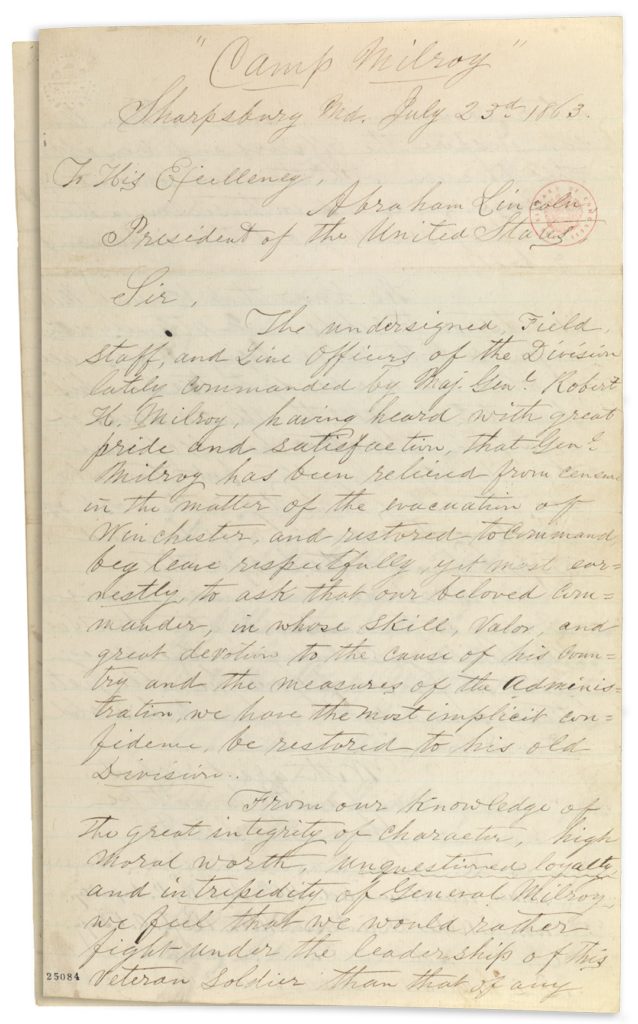 "Camp Milroy"
Sharpsburg Md. July 23d 1863.
To His Excellency,
Abraham Lincoln
President of the United States
Sir,
The undersigned, Field,
Staff, and Line Officers of the Division
lately commanded by Maj. Genl. Robert
H. Milroy, having heard with great
pride and satisfaction, that Genl.
Milroy has been relieved from censure
in the matter of the evacuation of
Winchester, and restored to command
beg leave respectfully, yet most ear=
nestly, to ask that our beloved Com=
mander, in whose skill, valor, and
great devotion to the cause of his Coun=
try and the measures of the Adminis=
tration, we have the most implicit con=
fidence, be restored to his old
Division..
From our knowledge of
the great integrity of character, high
moral worth, unquestioned loyalty,
and intrepidity of General Milroy,
we feel that we would rather
fight under the leadership of this
Veteran Soldier than that of any
25084